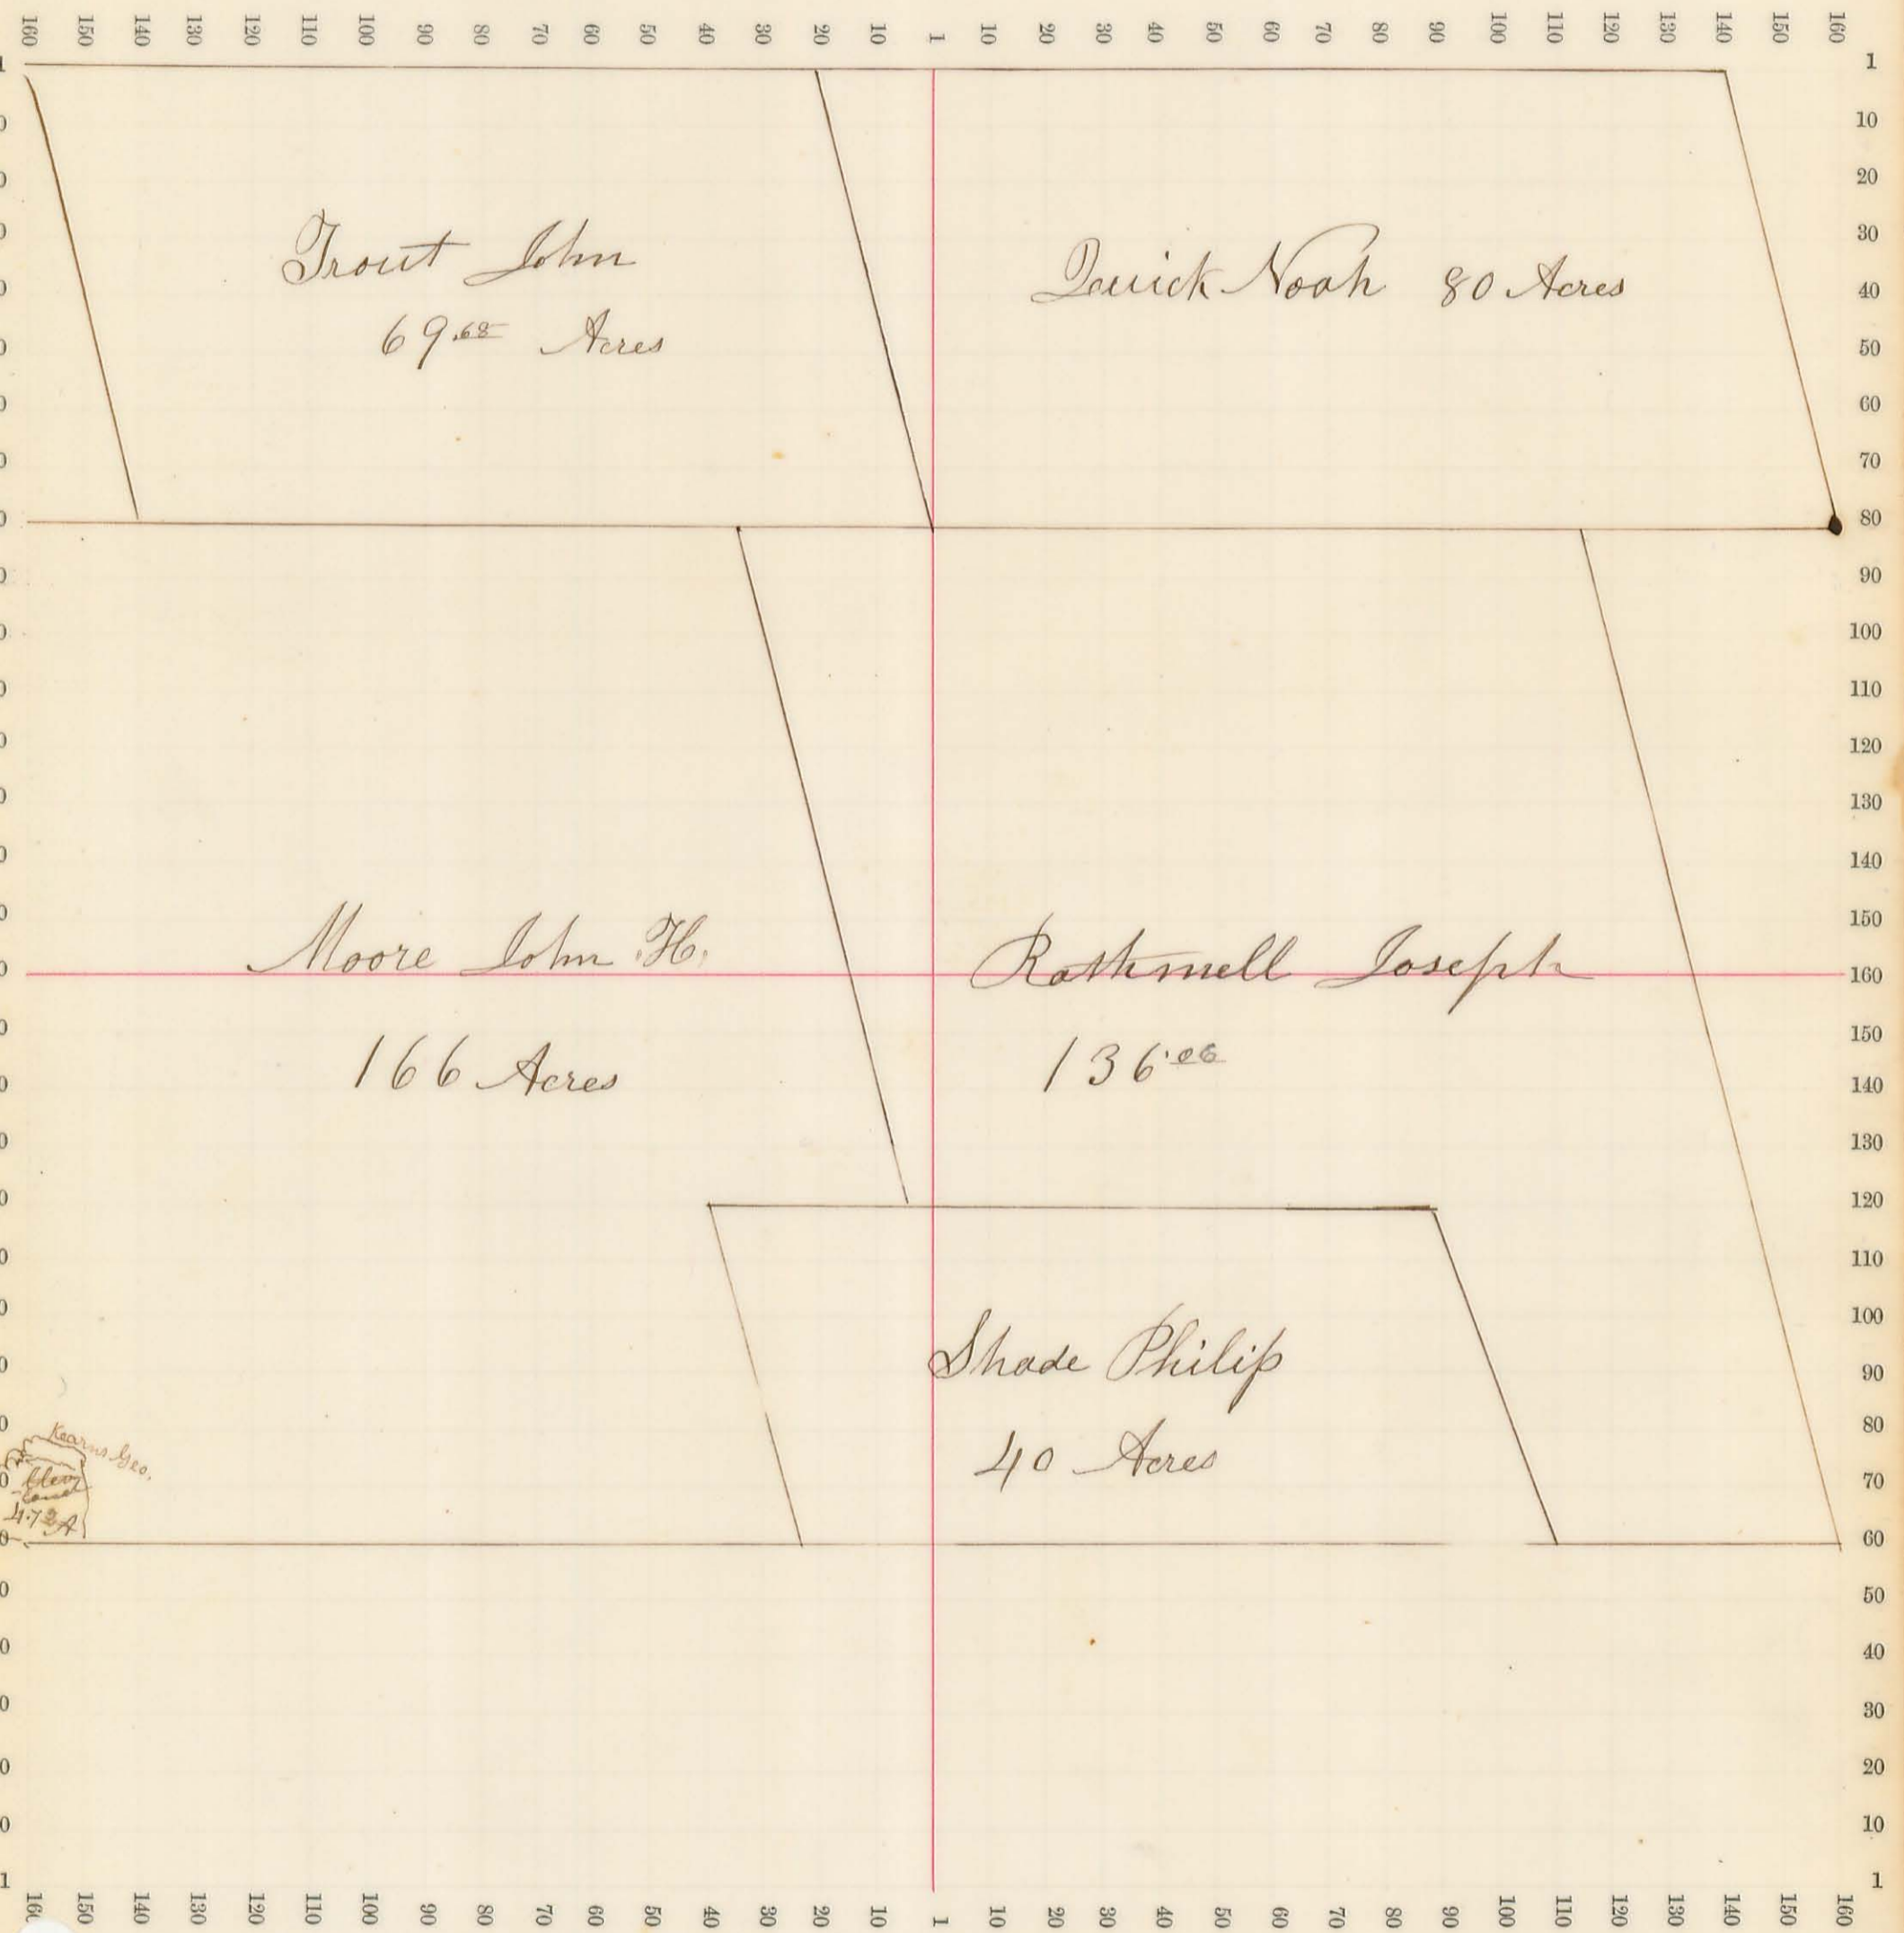 160 150 140 130 120 110 100 90 80 70 60 50 40 30 20 10 1 10 20 30 40 50 60 70 80 90 100 110 120 130 140 150 160
1
10
20
30
40
50
60
70
80
90
100
110
120
130
140
150
160
150
140
130
120
110
100
90
80
70
60
50
40
30
20
10
1
Trout John
69.68 Acres
Quick Noah 80 Acres
Moore John H.
166 Acres
Rathmell Joseph
136.06
Shade Philip
40 Acres
Kearns Geo.
4.72 A
160 150 140 130 120 110 100 90 80 70 60 50 40 30 20 10 1 10 20 30 40 50 60 70 80 90 100 110 120 130 140 150 160